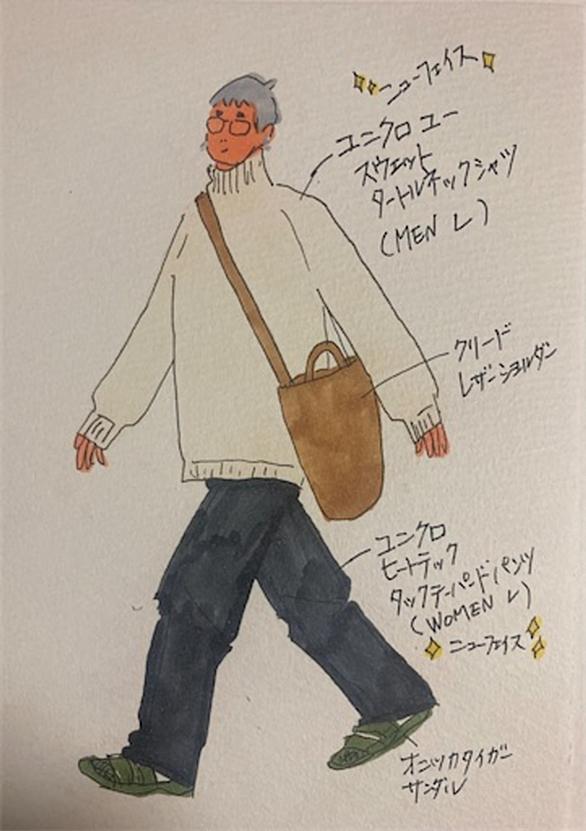 ニューフェイス
ユニクロ ユー
スウェット
タートルネックシャツ
(MEN L)
クリード
レザーショルダー
ユニクロ
ヒートテック
タックテーパードパンツ
(WOMEN L)
ニューフェイス
オニツカタイガー
サンダル